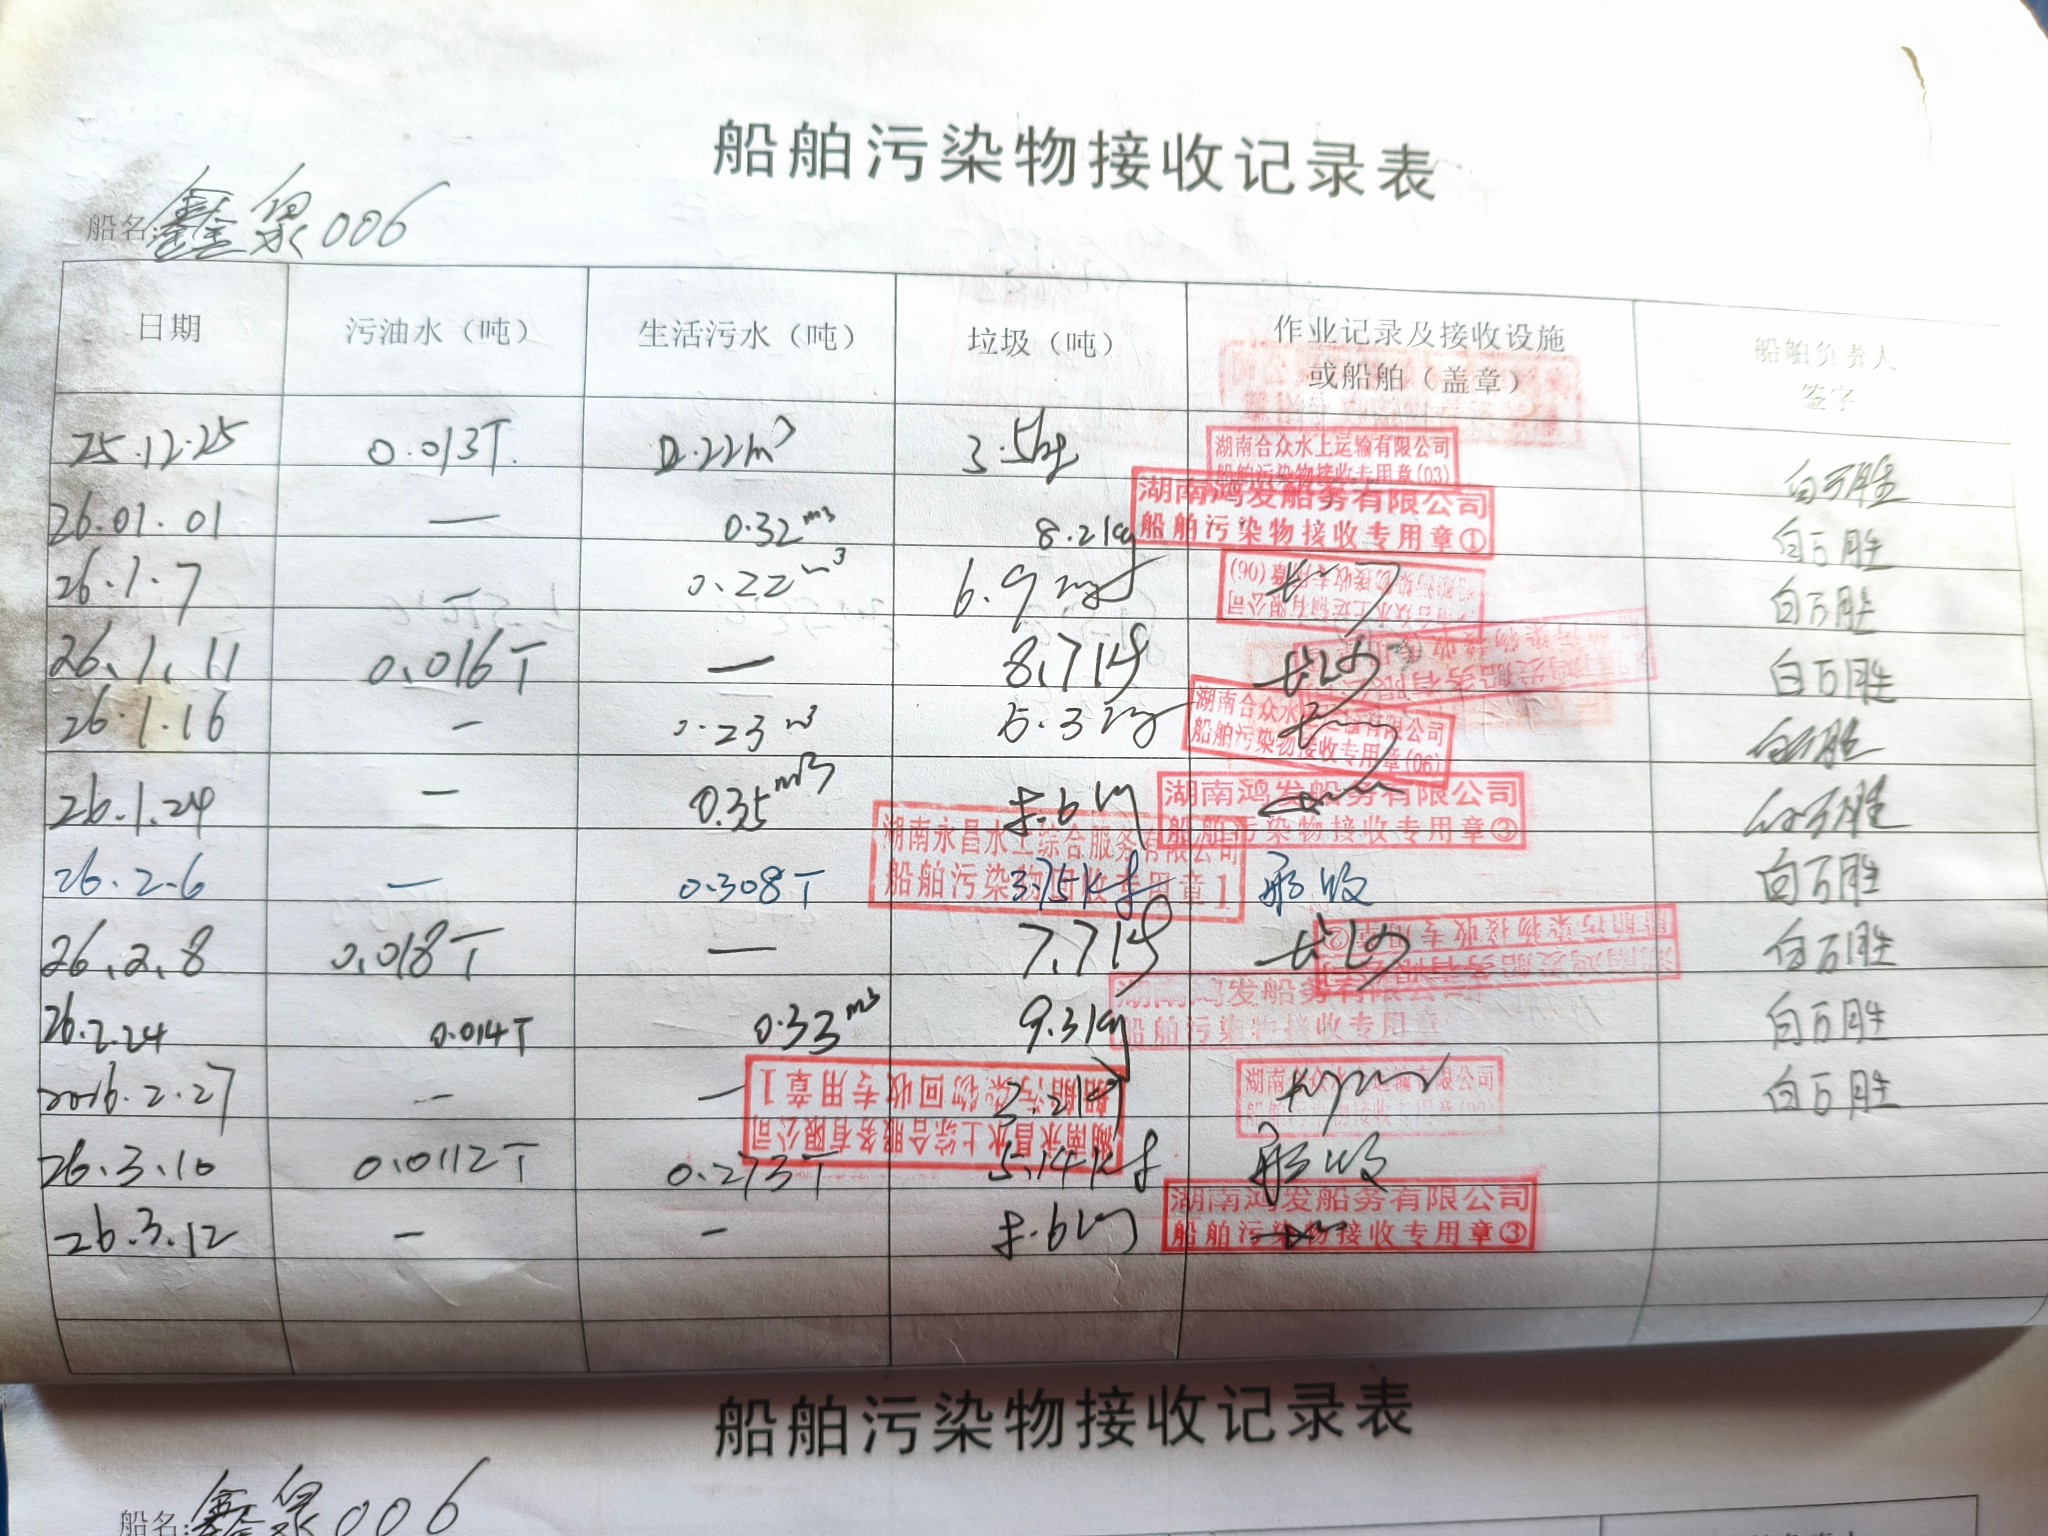 船舶污染物接收记录表
船名:鑫泉006
日期 污油水（吨） 生活污水（吨） 垃圾（吨） 作业记录及接收设施或船舶（盖章） 船舶负责人签字
25.12.25 0.013T. 0.22m³ 3.5kg 湖南合众水上运输有限公司 船舶污染物接收专用章(03) 白万胜
26.01.01 — 0.32m³ 8.2kg 湖南鸿发船务有限公司 船舶污染物接收专用章① 白万胜
26.1.7 0.22m³ 6.9kg 湖南合众水上运输有限公司 船舶污染物接收专用章(06) 白万胜
26.1.11 0.016T — 8.7kg 长沙 白万胜
26.1.16 — 0.23m³ 5.3kg 湖南合众水上运输有限公司 船舶污染物接收专用章(06) 白万胜
26.1.24 — 0.35m³ 湖南鸿发船务有限公司 船舶污染物接收专用章③ 白万胜
26.2.6 — 0.308T 3.75kg 湖南永昌水上综合服务有限公司 船舶污染物回收专用章1 白万胜
26.2.8 0.018T — 7.7kg 长沙 湖南鸿发船务有限公司 船舶污染物接收专用章② 白万胜
26.2.24 0.014T 0.33m³ 9.3kg 湖南鸿发船务有限公司 船舶污染物接收专用章 白万胜
2026.2.27 — — 3.2kg 湖南合众水上运输有限公司 船舶污染物接收专用章 白万胜
26.3.10 0.0112T 0.273T 5.14kg 湖南永昌水上综合服务有限公司 船舶污染物回收专用章1
26.3.12 — — 湖南鸿发船务有限公司 船舶污染物接收专用章③
船舶污染物接收记录表
船名:鑫泉006